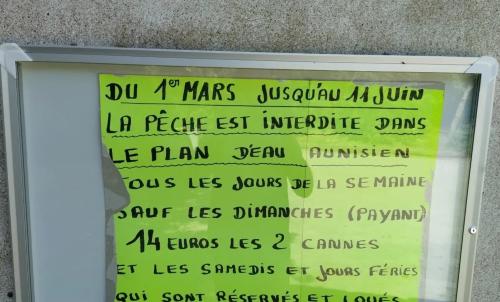 DU 1er MARS JUSQU'AU 11 JUIN
LA PÊCHE EST INTERDITE DANS
LE PLAN D'EAU AUNISIEN
TOUS LES JOURS DE LA SEMAINE
SAUF LES DIMANCHES (PAYANT)
14 EUROS LES 2 CANNES
ET LES SAMEDIS ET JOURS FÉRIES
QUI SONT RÉSERVÉS ET LOUÉS